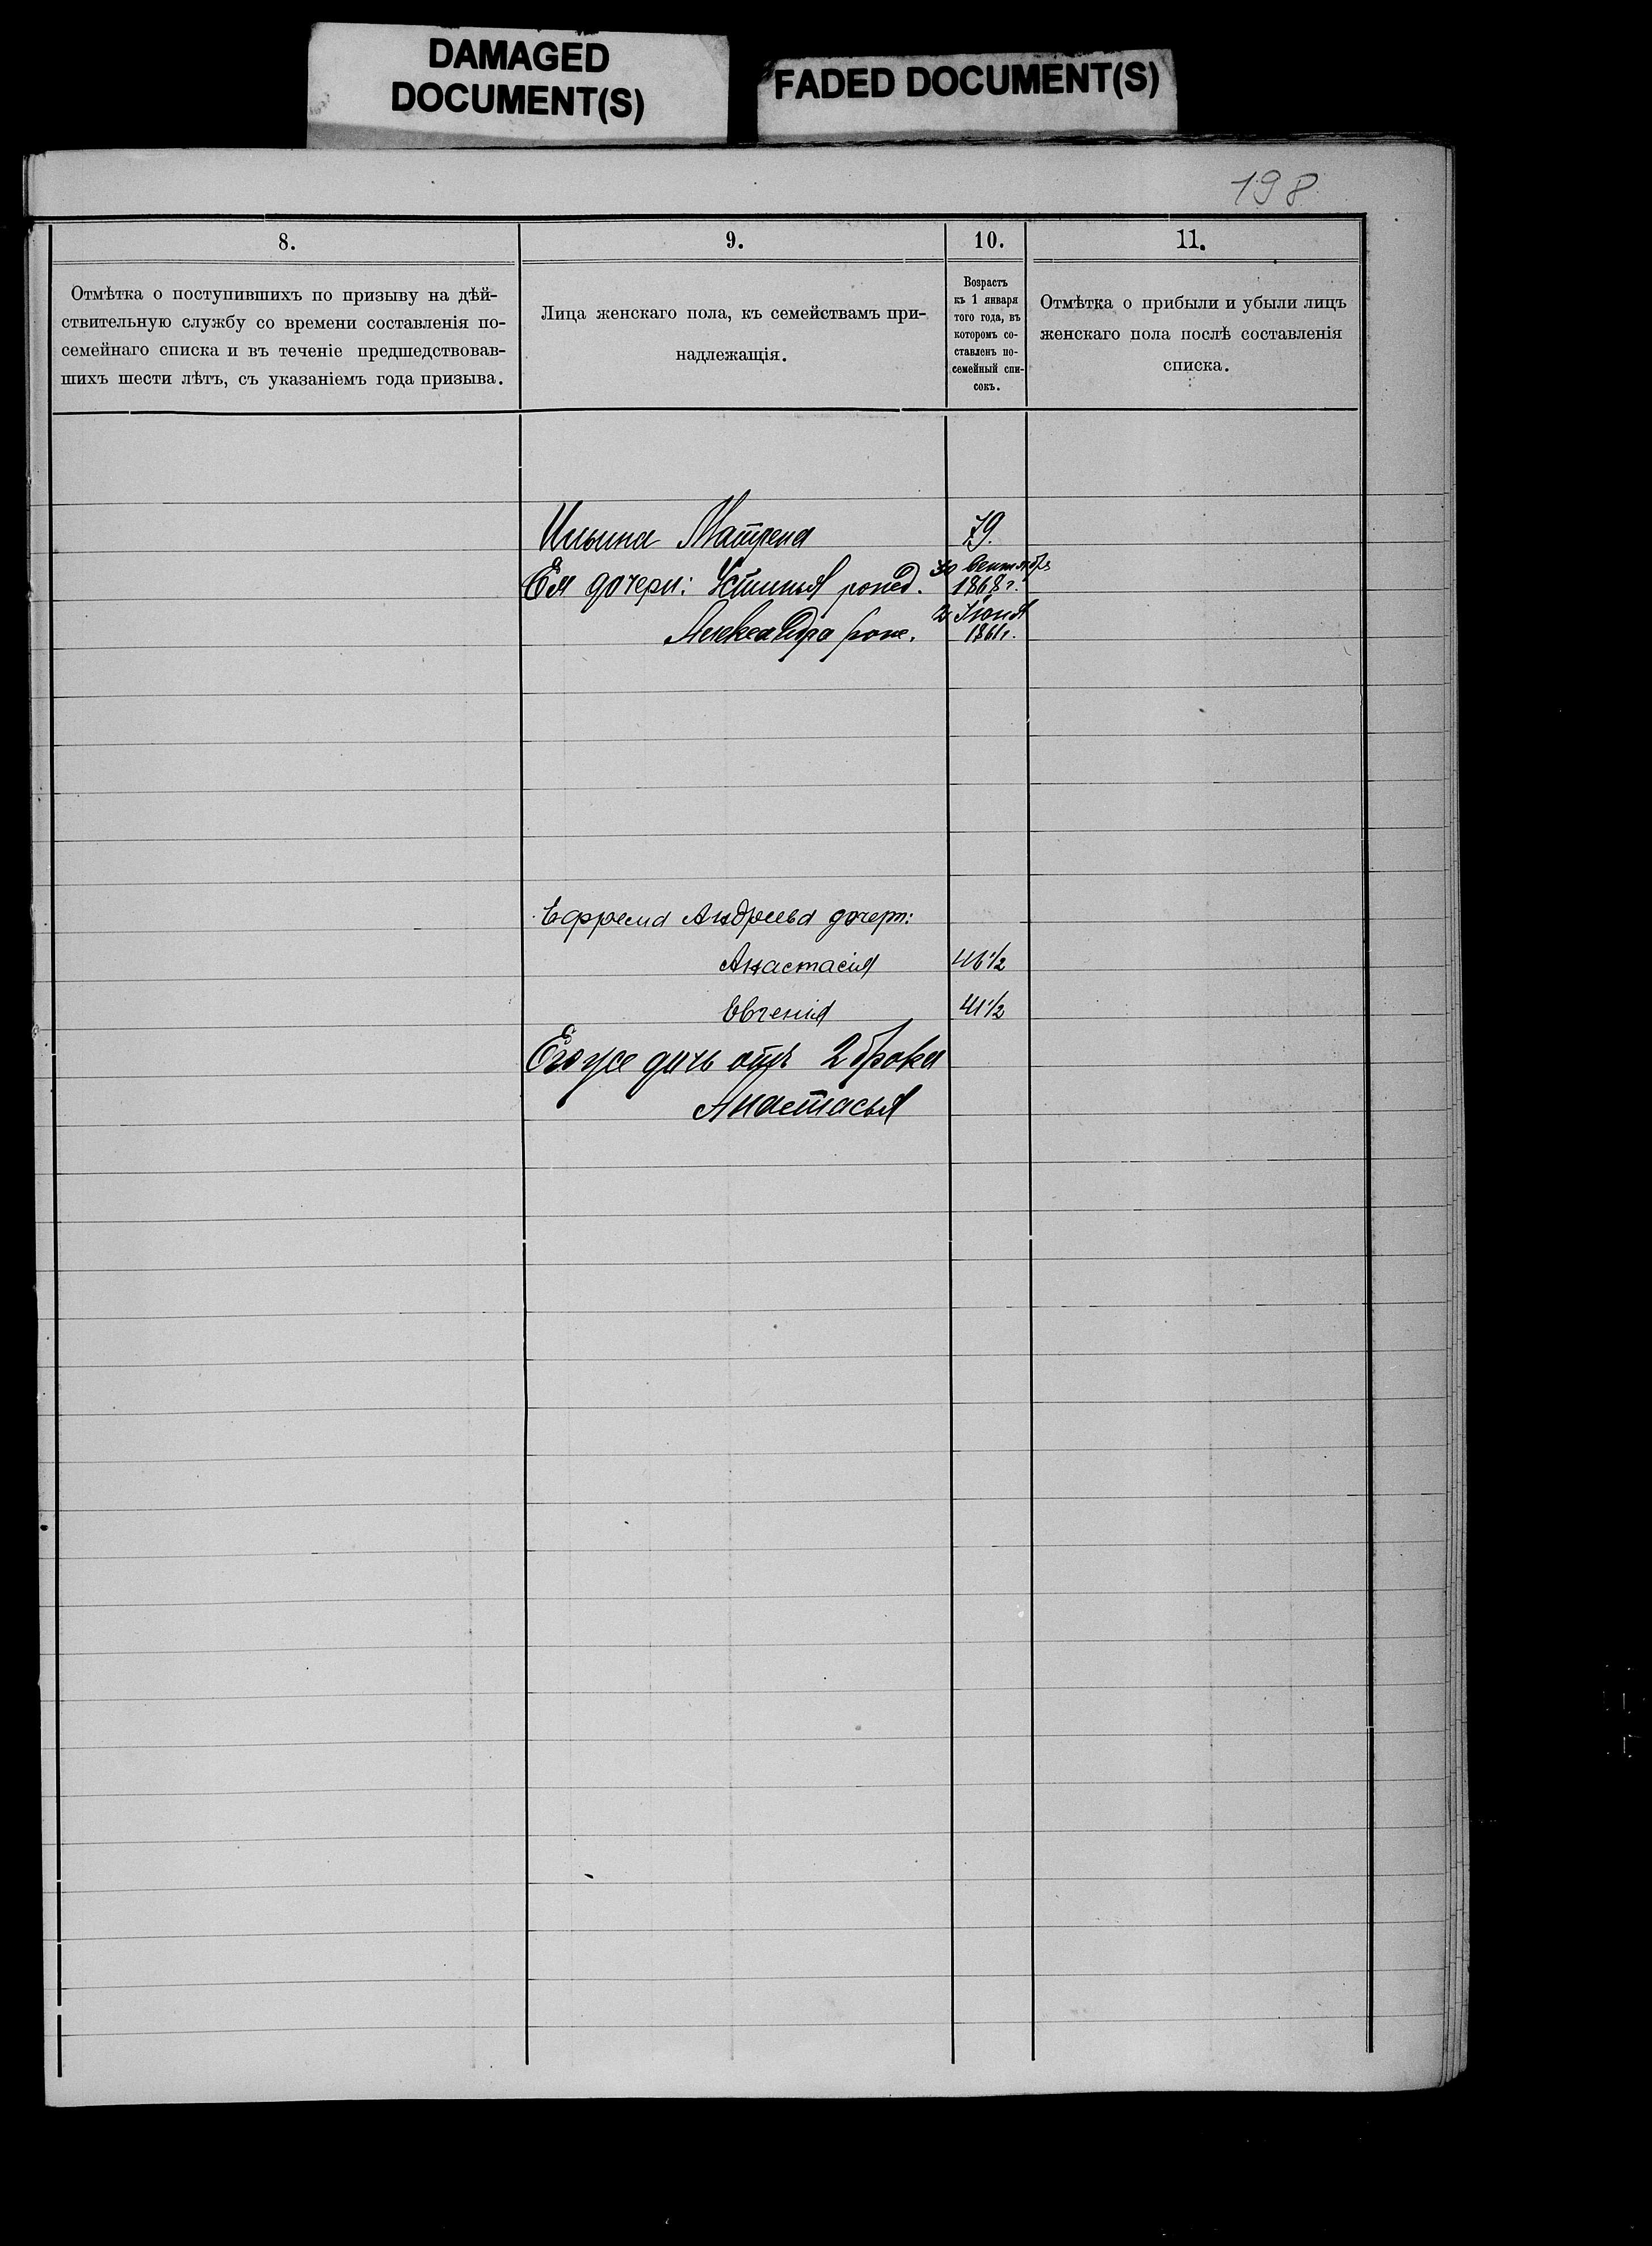 DAMAGED
DOCUMENT(S)
FADED DOCUMENT(S)
198
8.
Отмѣтка о поступившихъ по призыву на дѣй-
ствительную службу со времени составленія по-
семейнаго списка и въ теченіе предшедствовав-
шихъ шести лѣтъ, съ указаніемъ года призыва.
9.
Лица женскаго пола, къ семействамъ при-
надлежащія.
10.
Возрастъ
къ 1 января
того года, въ
которомъ со-
ставленъ по-
семейный спи-
сокъ.
11.
Отмѣтка о прибыли и убыли лицъ
женскаго пола послѣ составленія
списка.
Ильина Матрена 79.
Ея дочери: Устинья рожд. 30 Сентября
1868 г.
Александра рож. 2 Іюня
1861 г.
Ефрема Андреева дочери:
Анастасія 46 1/2
Евгенія 41 1/2
Его же дочь отъ 2 брака
Анастасья